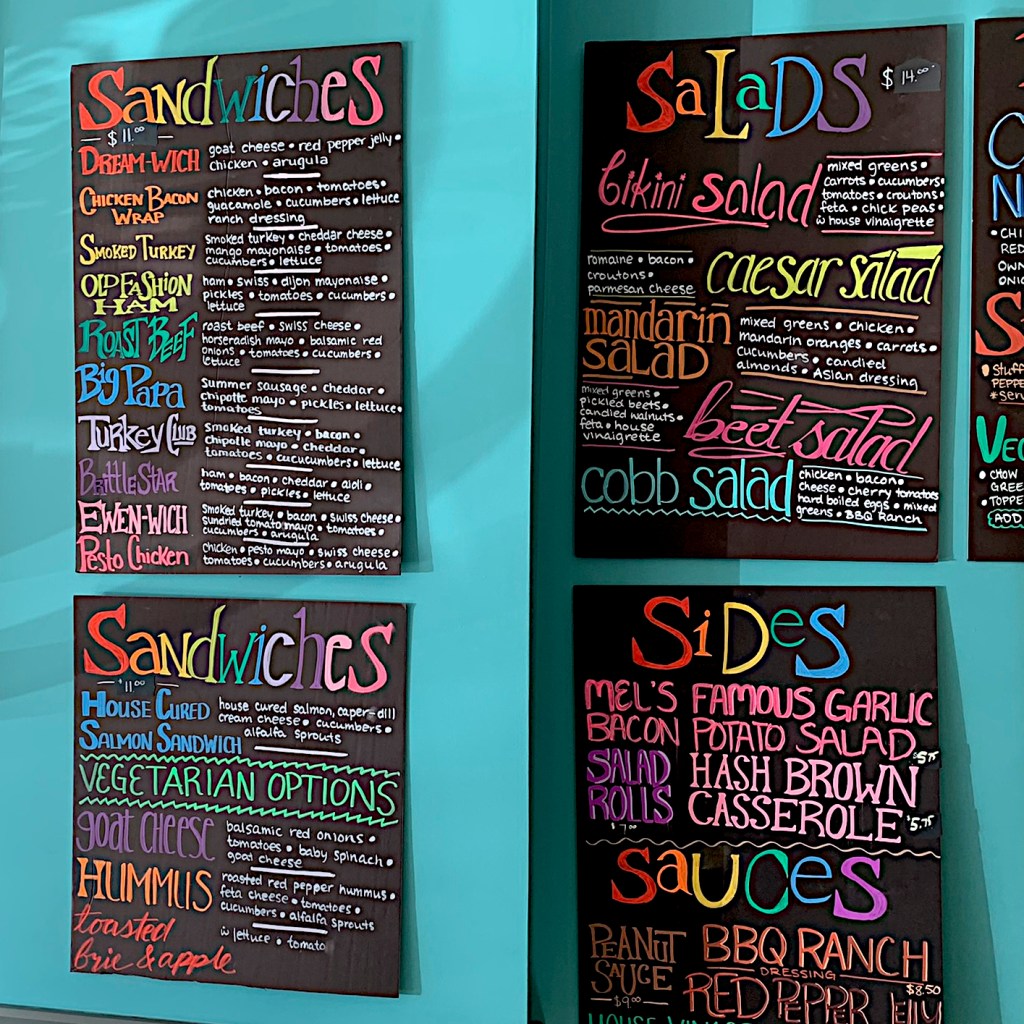 Sandwiches
$11.00
DREAM-WICH
goat cheese • red pepper jelly •
chicken • arugula
CHICKEN BACON
WRAP
chicken • bacon • tomatoes •
guacamole • cucumbers • lettuce
ranch dressing
SMOKED TURKEY
Smoked turkey • cheddar cheese •
mango mayonaise • tomatoes •
cucumbers • lettuce
OLD FASHION
HAM
ham • swiss • dijon mayonaise •
pickles • tomatoes • cucumbers •
lettuce
ROAST BEEF
roast beef • swiss cheese •
horseradish mayo • balsamic red
onions • tomatoes • cucumbers •
lettuce
Big Papa
Summer sausage • cheddar •
chipotle mayo • pickles • lettuce •
tomatoes
TURKEY CLUB
Smoked turkey • bacon •
chipolte mayo • cheddar •
tomatoes • cucucumbers • lettuce
BRITTLE STAR
ham • bacon • cheddar • aioli •
tomatoes • pickles • lettuce
EWEN-WICH
Smoked turkey • bacon • swiss cheese •
sundried tomato mayo • tomatoes •
cucumbers • arugula
Pesto Chicken
chicken • pesto mayo • swiss cheese •
tomatoes • cucumbers • arugula
Sandwiches
$11.00
HOUSE CURED
SALMON SANDWICH
house cured salmon, caper-dill
cream cheese • cucumbers •
alfalfa sprouts
VEGETARIAN OPTIONS
goat CHEESE
balsamic red onions •
tomatoes • baby spinach •
goat cheese
HUMMUS
roasted red pepper hummus •
feta cheese • tomatoes •
cucumbers • alfalfa sprouts
toasted
brie & apple
w lettuce • tomato
SaLaDS
$14.00
bikini salad
mixed greens •
carrots • cucumbers •
tomatoes • croutons •
feta • chick peas •
w house vinaigrette
romaine • bacon •
croutons •
parmesan cheese
caesar salad
mandarin
SALAD
mixed greens • chicken •
mandarin oranges • carrots •
cucumbers • candied
almonds • Asian dressing
mixed greens •
pickled beets •
candied walnuts •
feta • house
vinaigrette
beet salad
cobb salad
chicken • bacon •
cheese • cherry tomatoes
hard boiled eggs • mixed
greens • BBQ Ranch
SiDeS
MEL'S FAMOUS GARLIC
BACON POTATO SALAD
$5.75
SALAD
ROLLS
$7.00
HASH BROWN
CASSEROLE
$5.75
SaUCeS
PEANUT
SAUCE
$9.00
BBQ RANCH
DRESSING
$8.50
RED PEPPER JELLY
• CHI
RED
OWN
ONIO
S
Stuff
PEPPE
* Serv
VEG
• CHOW
GREE
• TOPPE
ADD